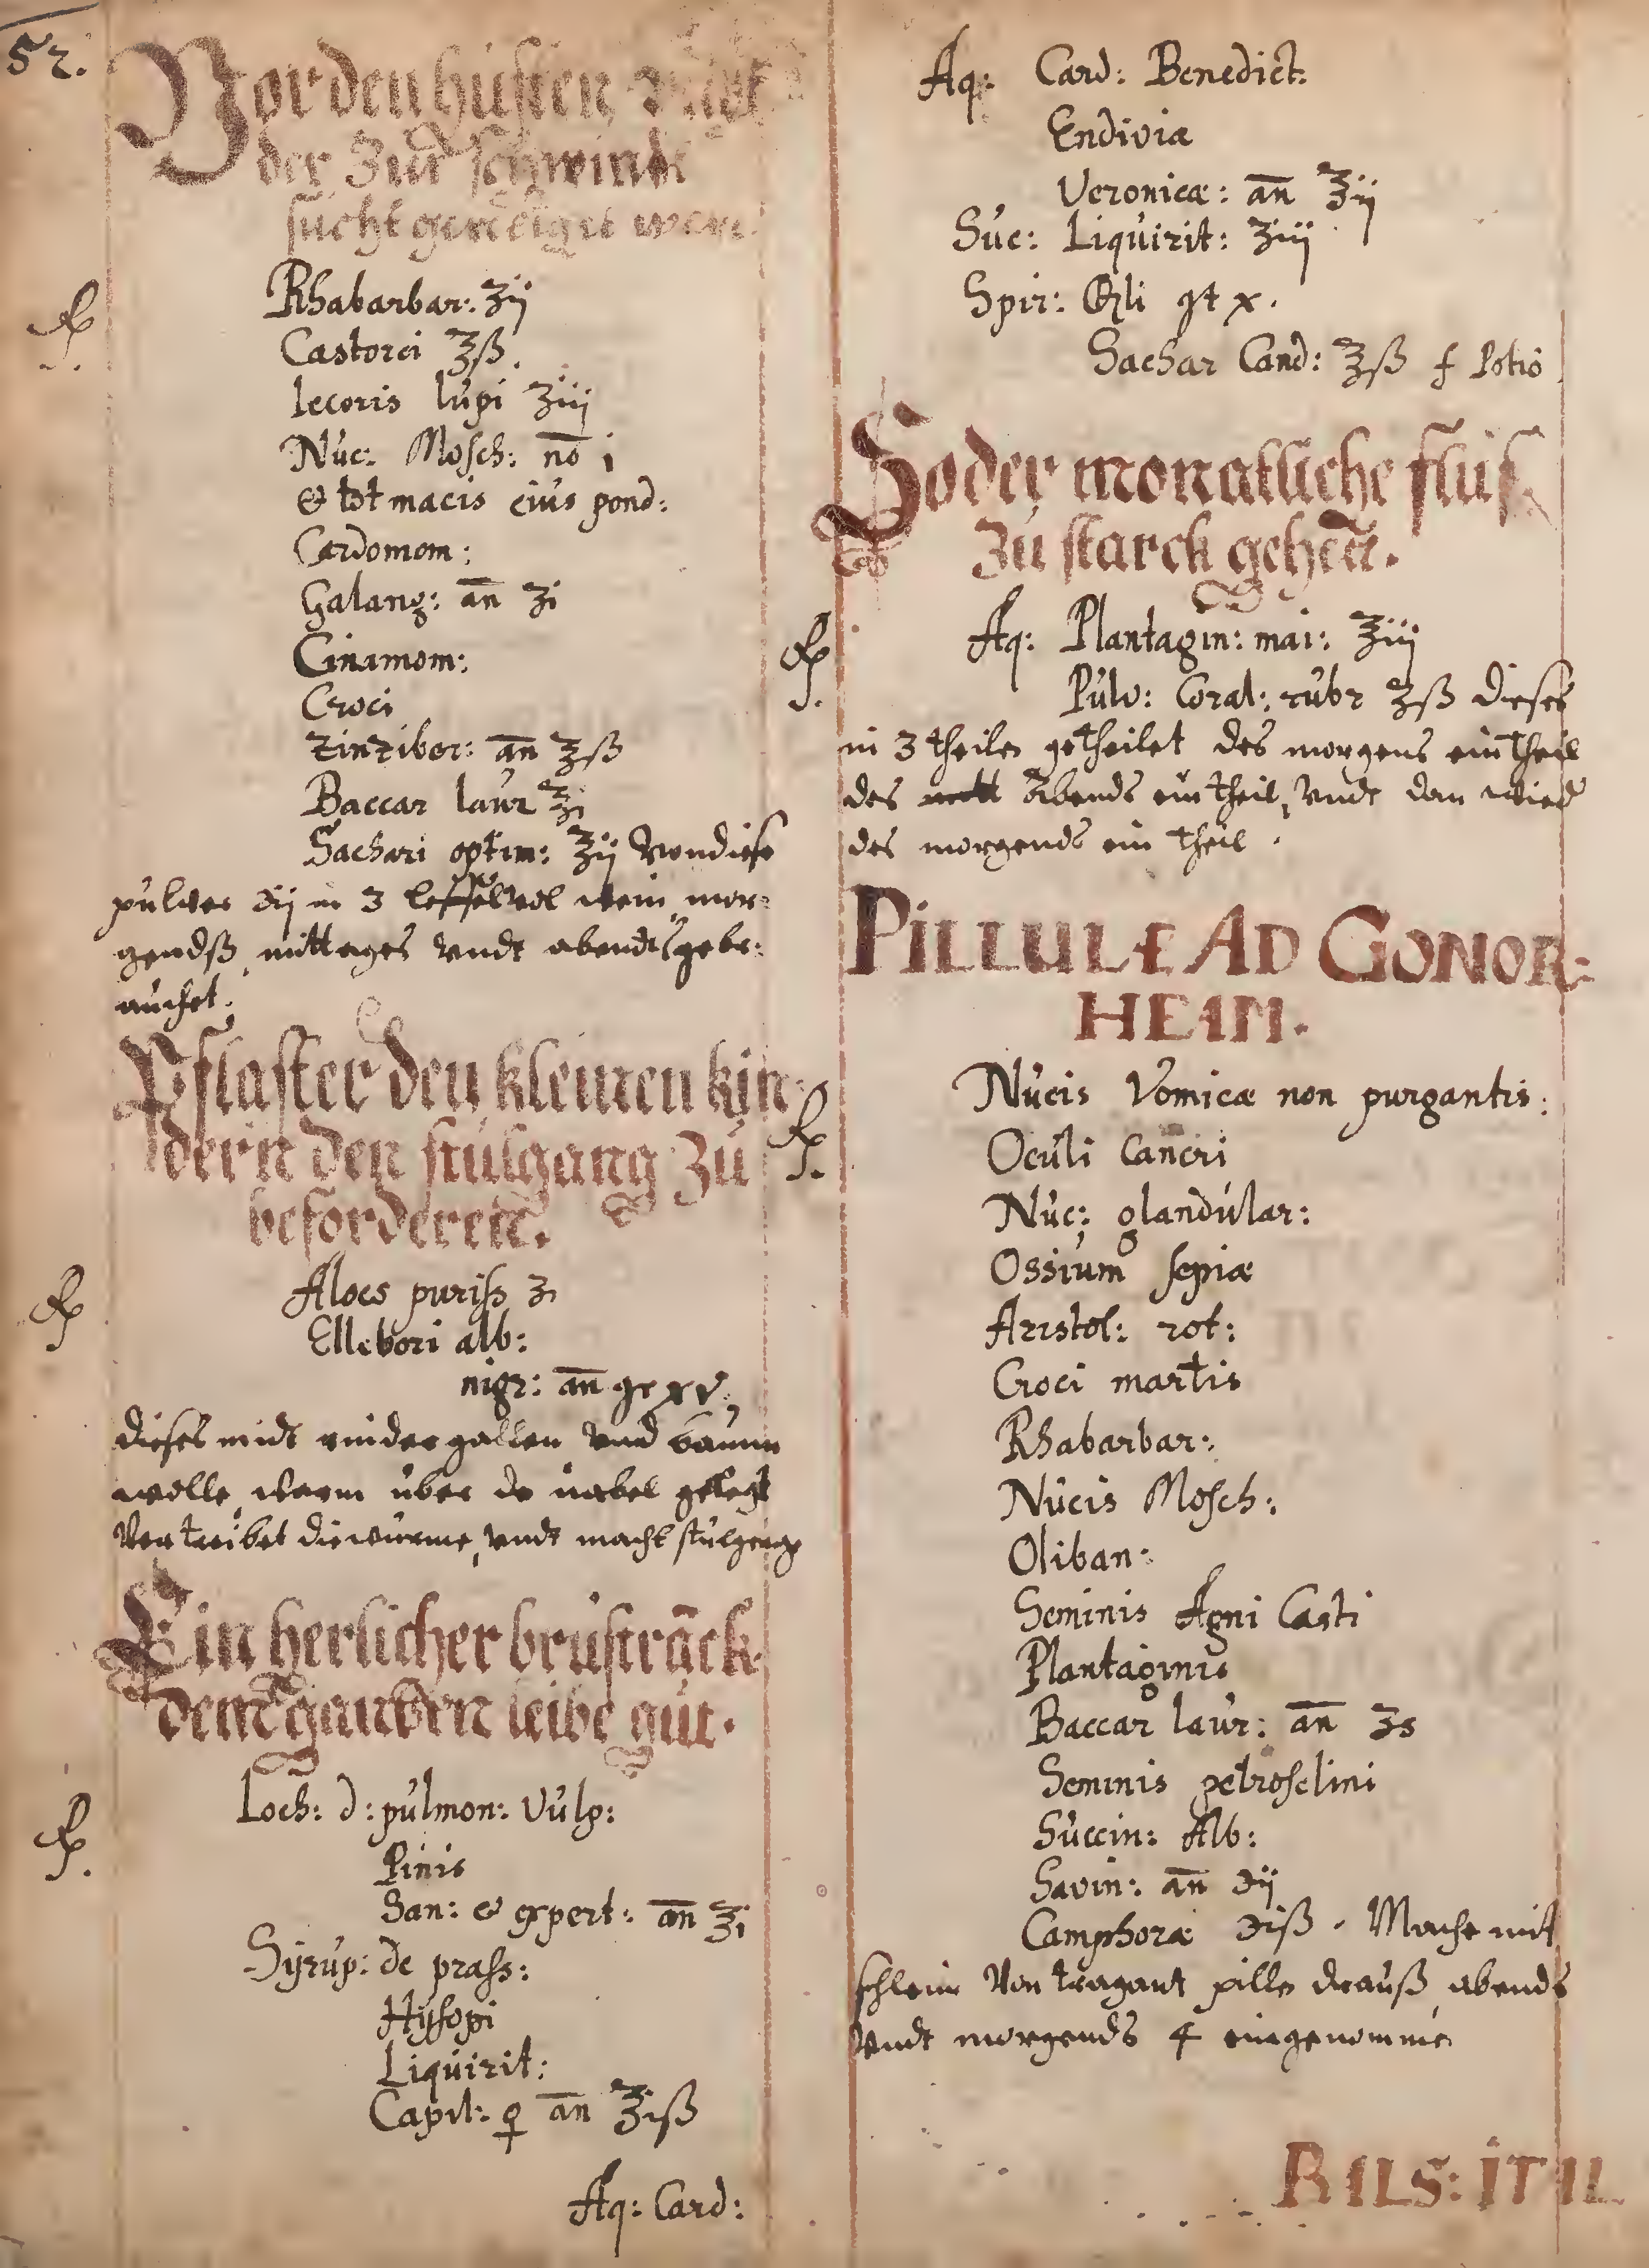 52.
Vor den husten, undt
der zur schwind
sucht geneiget were.
Rhabarbar: ʒij
Castorei ℥ß.
Iecoris lupi ʒiij
Nuc: Mosch: no i
& tot macis eius pond:
Cardomom:
Galang: an ʒi
Cinamom:
Croci
Zinziber: an ʒß
Baccar laur ʒi
Sachari optim: ℥ij von diese
pulver ℈ij in 3 leffel vol wein mor:
gendß, mittages undt abends gebr:
auchet.
Pflaster den kleinen kin:
dern den stulgang zu
beforderen.
Aloes puriss ʒi
Ellebori alb:
nigr: an gr xv,
dieses midt rinder gallen und baum
wolle, warm uber de nabel gelegt
vertreibet die wurme, undt macht stulgang
Ein herlicher brustranck
dem gantzen leibe gut.
Loch: d: pulmon: Vulp:
Pinis
San: & expert: an ℥i
Syrup: de prass:
Hyssopi
Liquirit:
Capil: ♀ an ℥iß
Aq: Card:
Aq: Card: Benedict:
Endivia
Veronicæ: an ℥ij
Suc: Liquirit: ʒiij
Spir: ⊕li gt x.
Sachar Cand: ℥ß f Potio
So der monatliche fluß
zu starck gehet.
℞. Aq: Plantagin: mai: ℥iij
Pulv: Coral: rubr ʒß dieses
in 3 theile getheilet des morgens ein theil
des abends ein theil, undt dan wied
des morgends ein theil.
PILLULE AD GONOR:
HEAM.
℞. Nucis Vomicæ non purgantis:
Oculi Cancri
Nuc: glandular:
Ossium sepiæ
Aristol: rot:
Croci martis
Rhabarbar:
Nucis Mosch:
Oliban:
Seminis Agni Casti
Plantaginis
Baccar laur: an ʒs
Seminis petroselini
Succin: Alb:
Savin: an ℈ij
Camphoræ ℈iß. Mache mit
schleim von tragant pille drauß, abends
undt morgends 4 eingenomme
BALS: ITAL